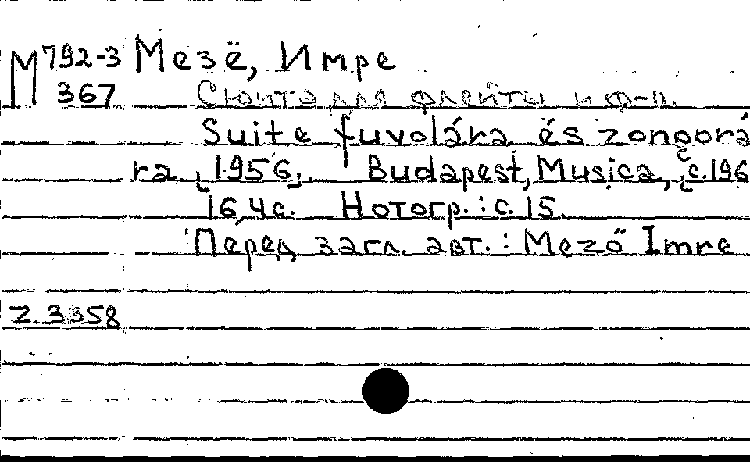 М 792-3 Мезё, Имре
367 Сюита для флейты и ф-п.
Suite fuvolára és zongorá
ra [1956]. Budapest, Musica, [c.196
16,4с. Нотогр.: с.15.
Перед загл. авт.: Mező Imre
Z.3358